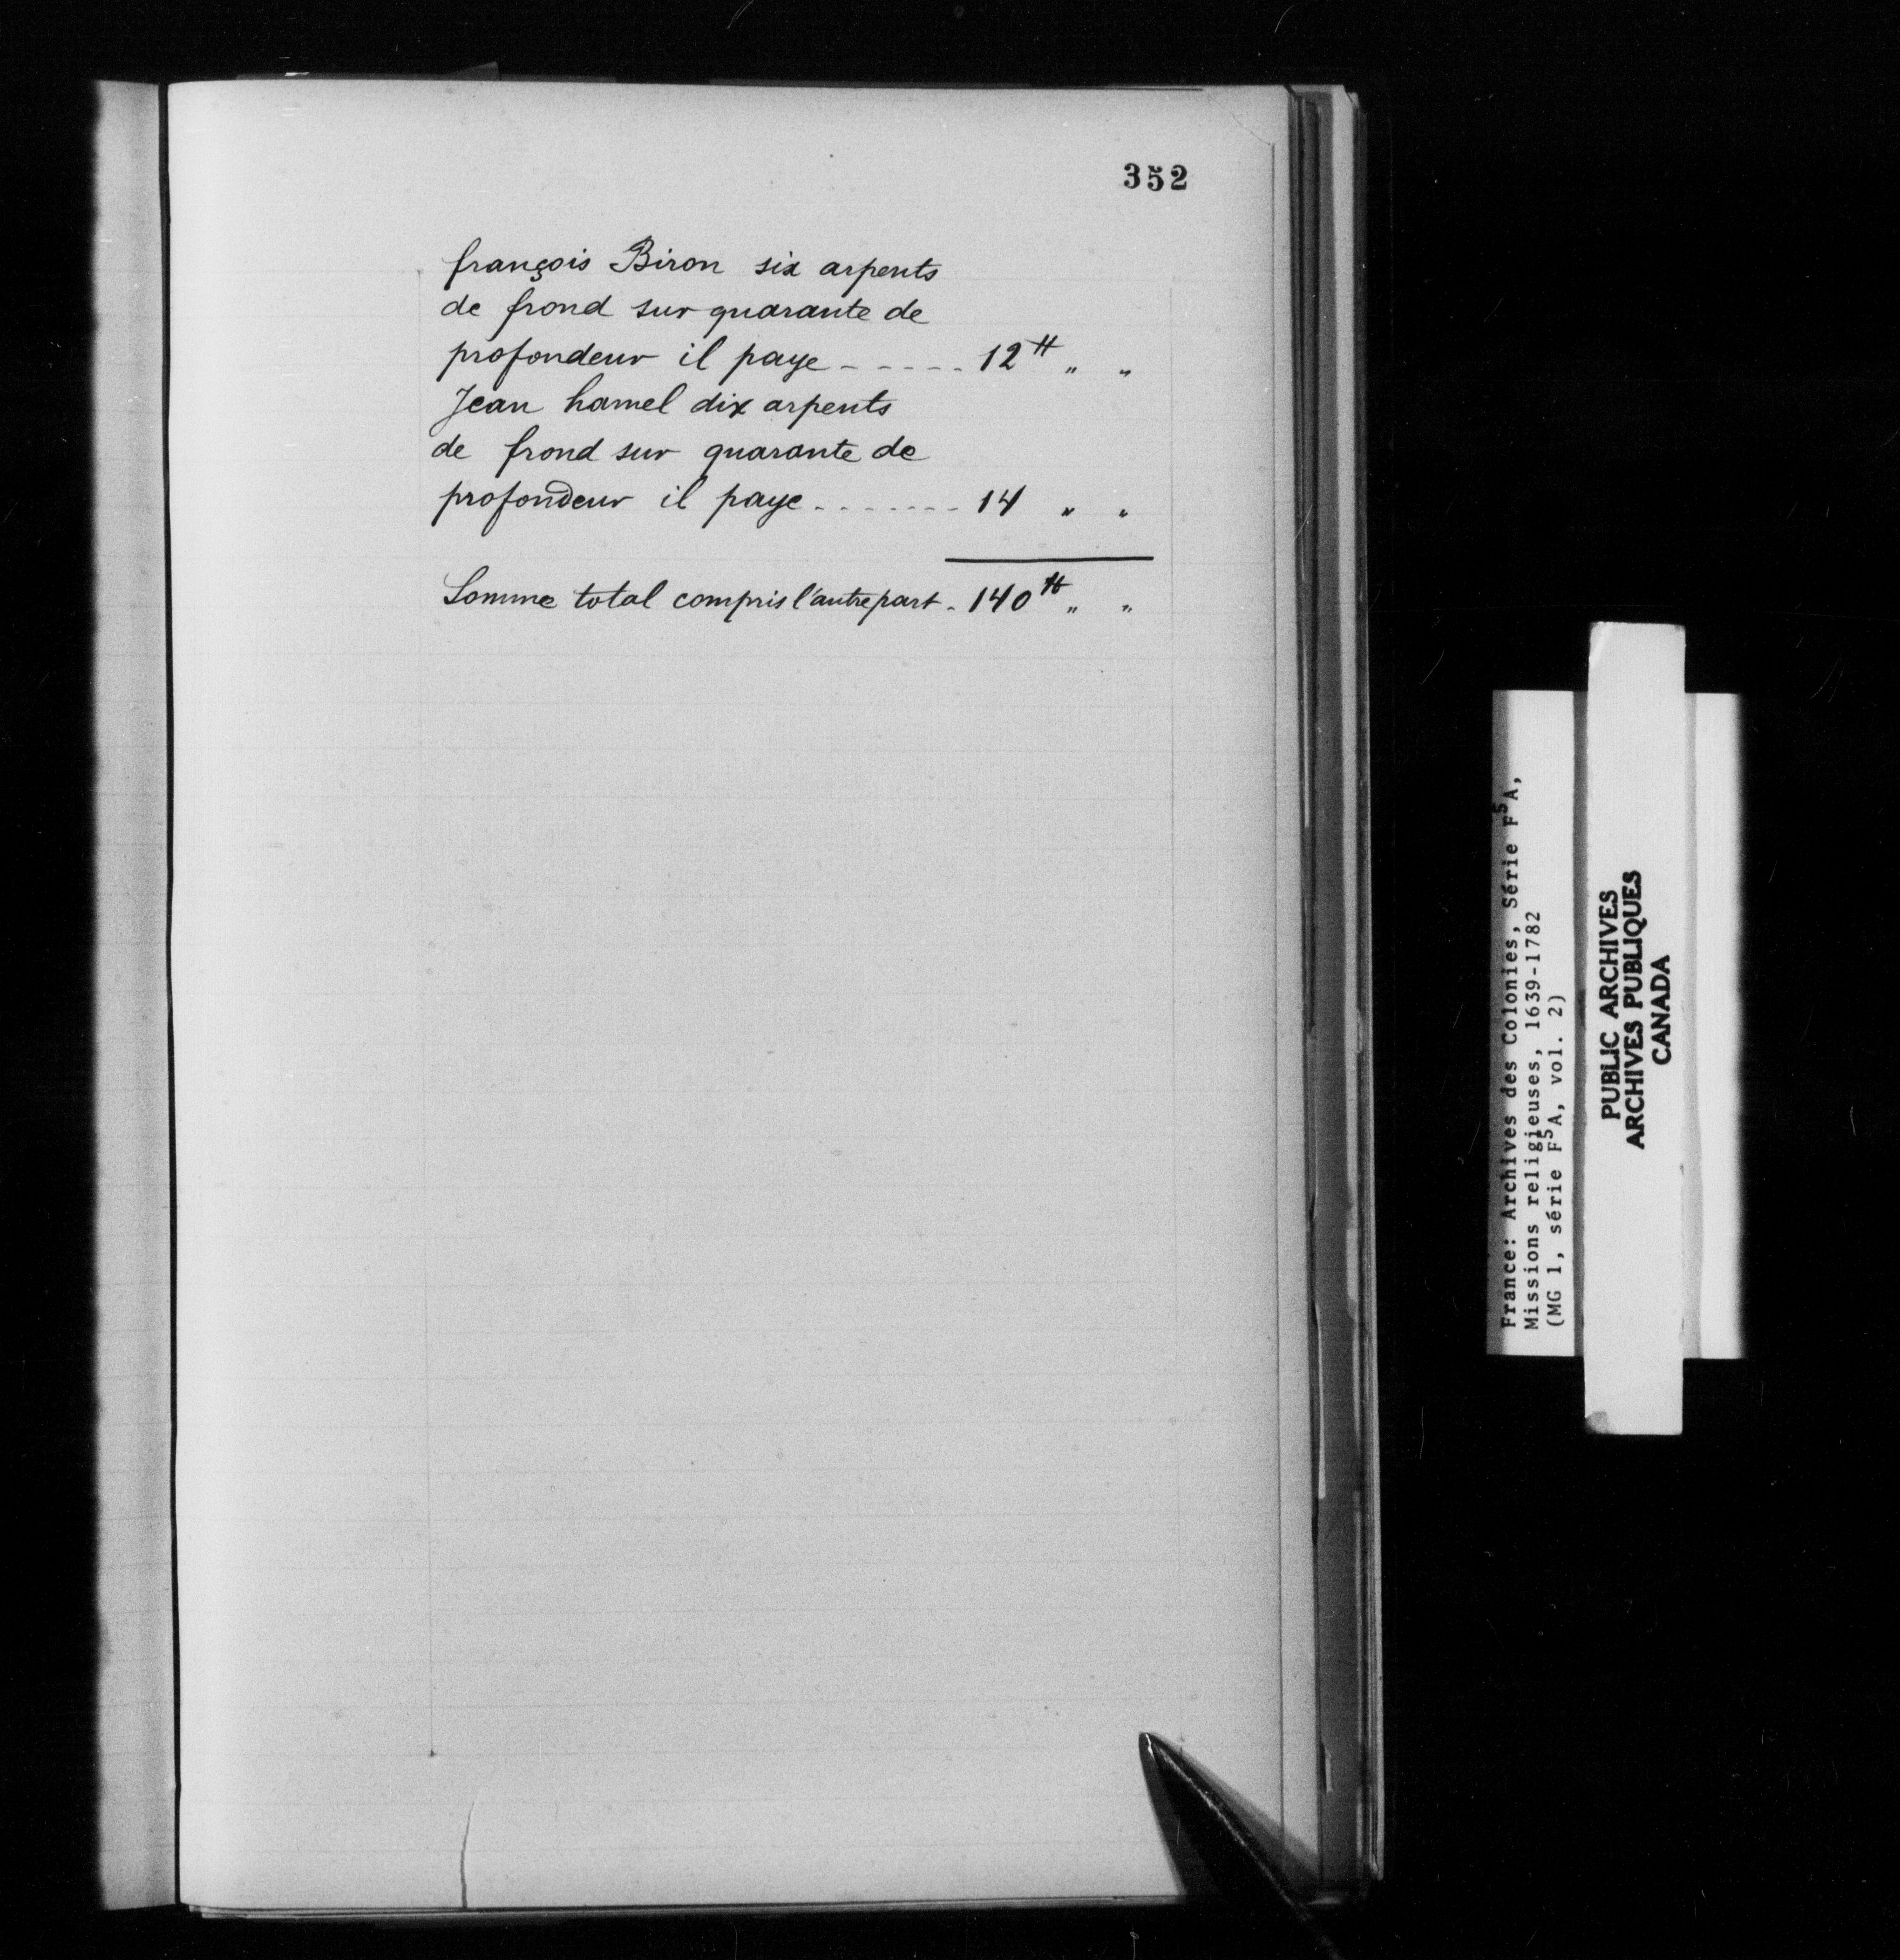 352
françois Biron six arpents
de frond sur quarante de
profondeur il paye - - - - - 12 ₶ „ „
Jean hamel dix arpents
de frond sur quarante de
profondeur il paye - - - - - - - 14 „ „
Somme total compris l'autre part - 140 ₶ „ „
France: Archives des Colonies, Série F⁵A,
Missions religieuses, 1639-1782
(MG 1, série F⁵A, vol. 2)
PUBLIC ARCHIVES
ARCHIVES PUBLIQUES
CANADA